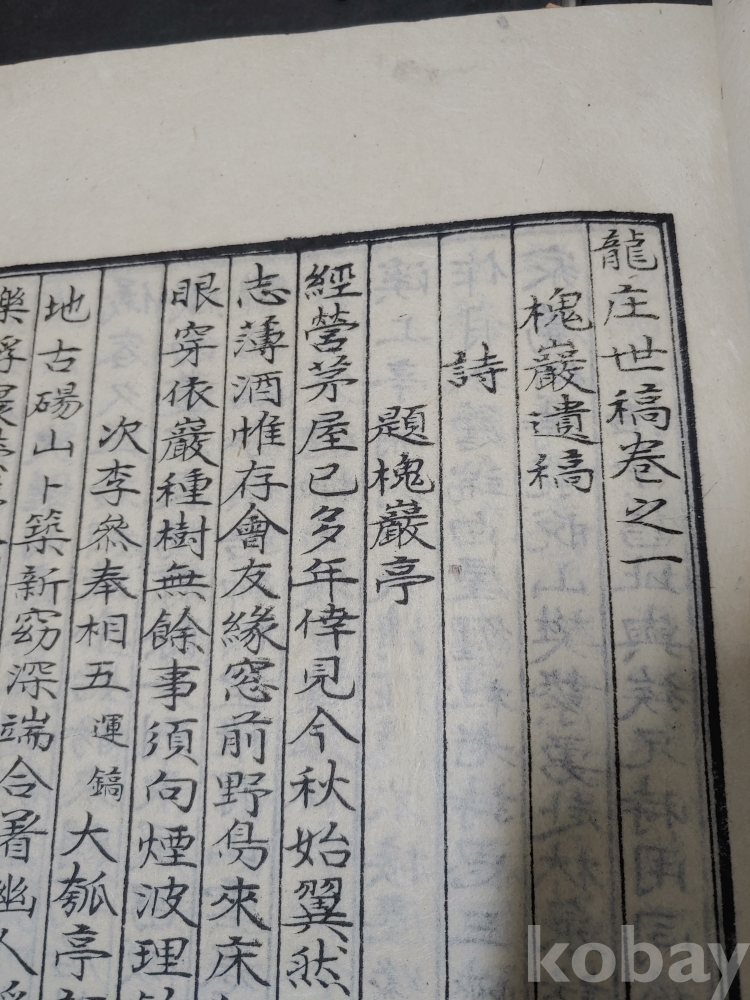 龍庄世稿卷之一
槐巖遺稿
詩
題槐巖亭
經營茅屋已多年倖見今秋始翼然
志薄酒惟存會友緣窓前野鳥來床
眼穿依巖種樹無餘事須向煙波理
次李叅奉相五運鎬大瓠亭
地古碭山卜築新窈深端合着幽人
樂
kobay